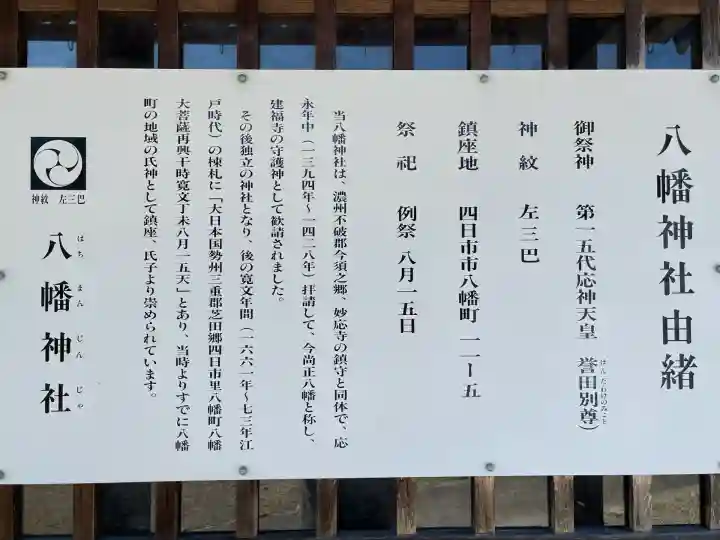 八幡神社由緒
御祭神 第一五代応神天皇 誉田別尊）
ほんだわけのみこと
神紋 左三巴
鎮座地 四日市市八幡町一一ー五
祭祀 例祭 八月一五日
当八幡神社は、濃州不破郡今須之郷、妙応寺の鎮守と同体で、応
永年中（一三九四年～一四二八年）拝請して、今尚正八幡と称し、
建福寺の守護神として勧請されました。
その後独立の神社となり、後の寛文年間（一六六一年～七三年江
戸時代）の棟札に「大日本国勢州三重郡芝田郷四日市里八幡町八幡
大菩薩再興干時寛文丁未八月一五天」とあり、当時よりすでに八幡
町の地域の氏神として鎮座、氏子より崇められています。
神紋 左三巴
八幡神社
はちまんじんじゃ